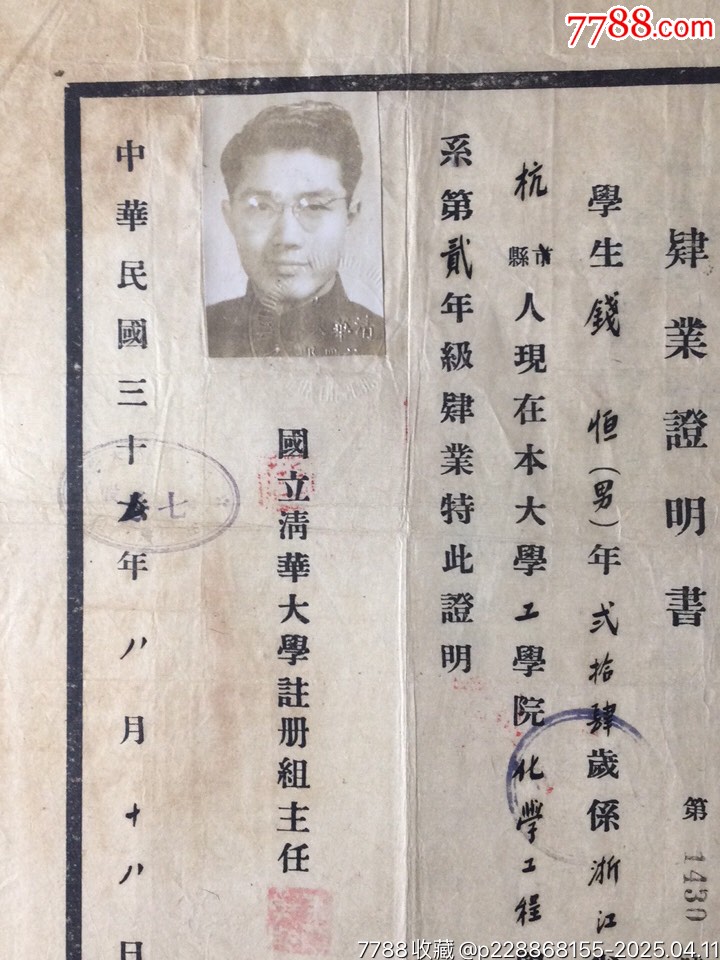 7788.com
肄業證明書
第1430
學生錢恒(男)年弍拾肆歲係浙江
杭縣市人現在本大學工學院化學工程
系第貳年級肄業特此證明
國立清華大學註册組主任
中華民國三十年八月十八日
七
清華
7788收藏 @p228868155-2025.04.11